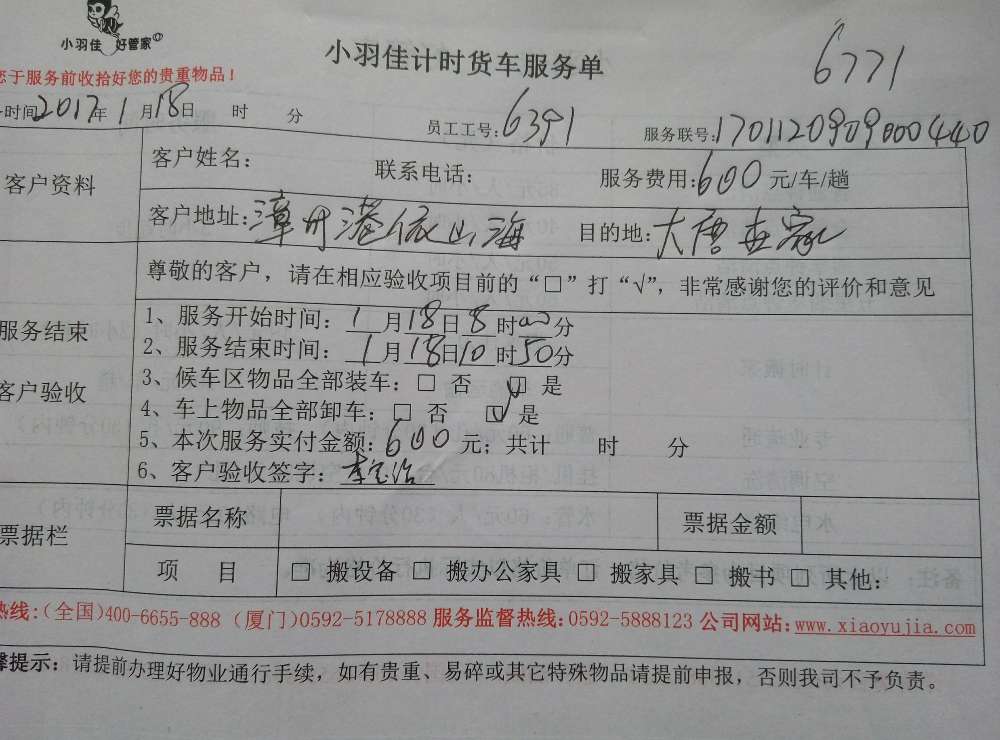 小羽佳 好管家
小羽佳计时货车服务单
6771
您于服务前收拾好您的贵重物品！
时间2017年1月18日 时 分
员工工号:6391
服务联号:1701120909000440
客户资料
客户姓名: 联系电话: 服务费用:600元/车/趟
客户地址:漳州港依山海 目的地:大唐世家
尊敬的客户，请在相应验收项目前的“□”打“√”，非常感谢您的评价和意见
服务结束
客户验收
1、服务开始时间：1月18日8时00分
2、服务结束时间：1月18日10时50分
3、候车区物品全部装车：□ 否 ☑ 是
4、车上物品全部卸车：□ 否 ☑ 是
5、本次服务实付金额:600元；共计 时 分
6、客户验收签字：李
票据栏
票据名称 票据金额
项 目 □ 搬设备 □ 搬办公家具 □ 搬家具 □ 搬书 □ 其他:
热线:(全国)400-6655-888 (厦门)0592-5178888 服务监督热线:0592-5888123 公司网站:www.xiaoyujia.com
馨提示：请提前办理好物业通行手续，如有贵重、易碎或其它特殊物品请提前申报，否则我司不予负责。